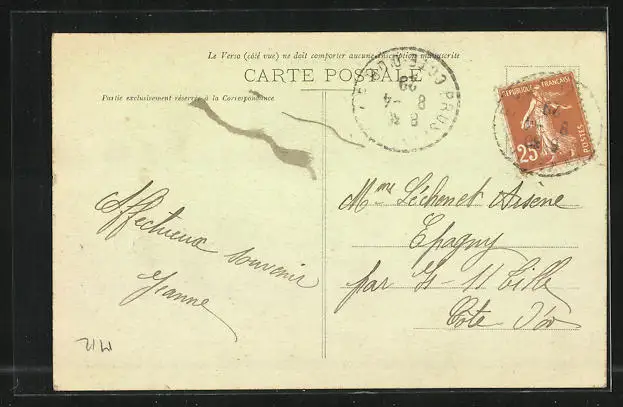 Le Verso (côté vue) ne doit comporter aucune inscription manuscrite
CARTE POSTALE
Partie exclusivement réservée à la Correspondance
REPUBLIQUE FRANÇAISE
POSTES
25
8 -4
29
Mme Léchenet Arsene
Epagny
par Is-s/Tille
Côte d'or
Affectueux souvenir
Jeanne